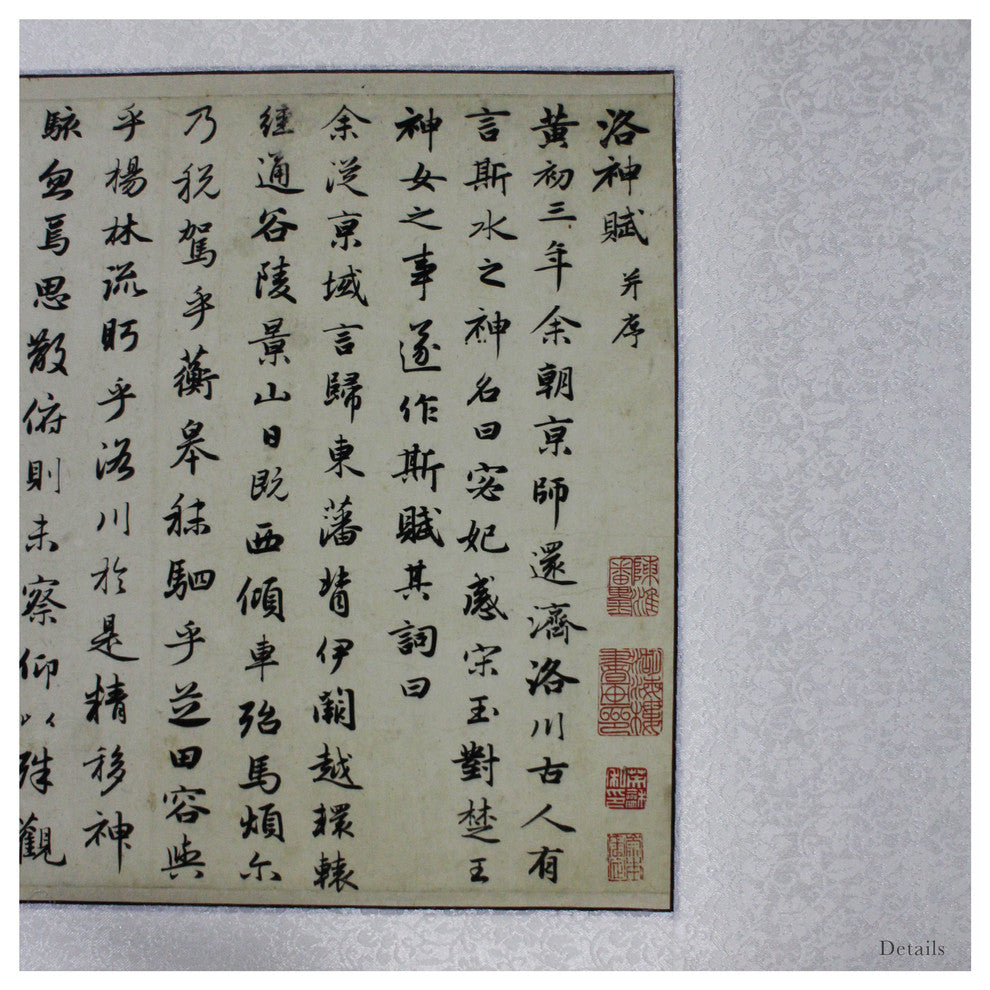 洛神賦 并序
黃初三年余朝京師還濟洛川古人有
言斯水之神名曰宓妃感宋玉對楚王
神女之事遂作斯賦其詞曰
余從京域言歸東藩背伊闕越轘轅
經通谷陵景山日既西傾車殆馬煩尔
乃稅駕乎蘅皋秣駟乎芝田容與
乎楊林流眄乎洛川於是精移神
駭忽焉思散俯則未察仰以殊觀
Details